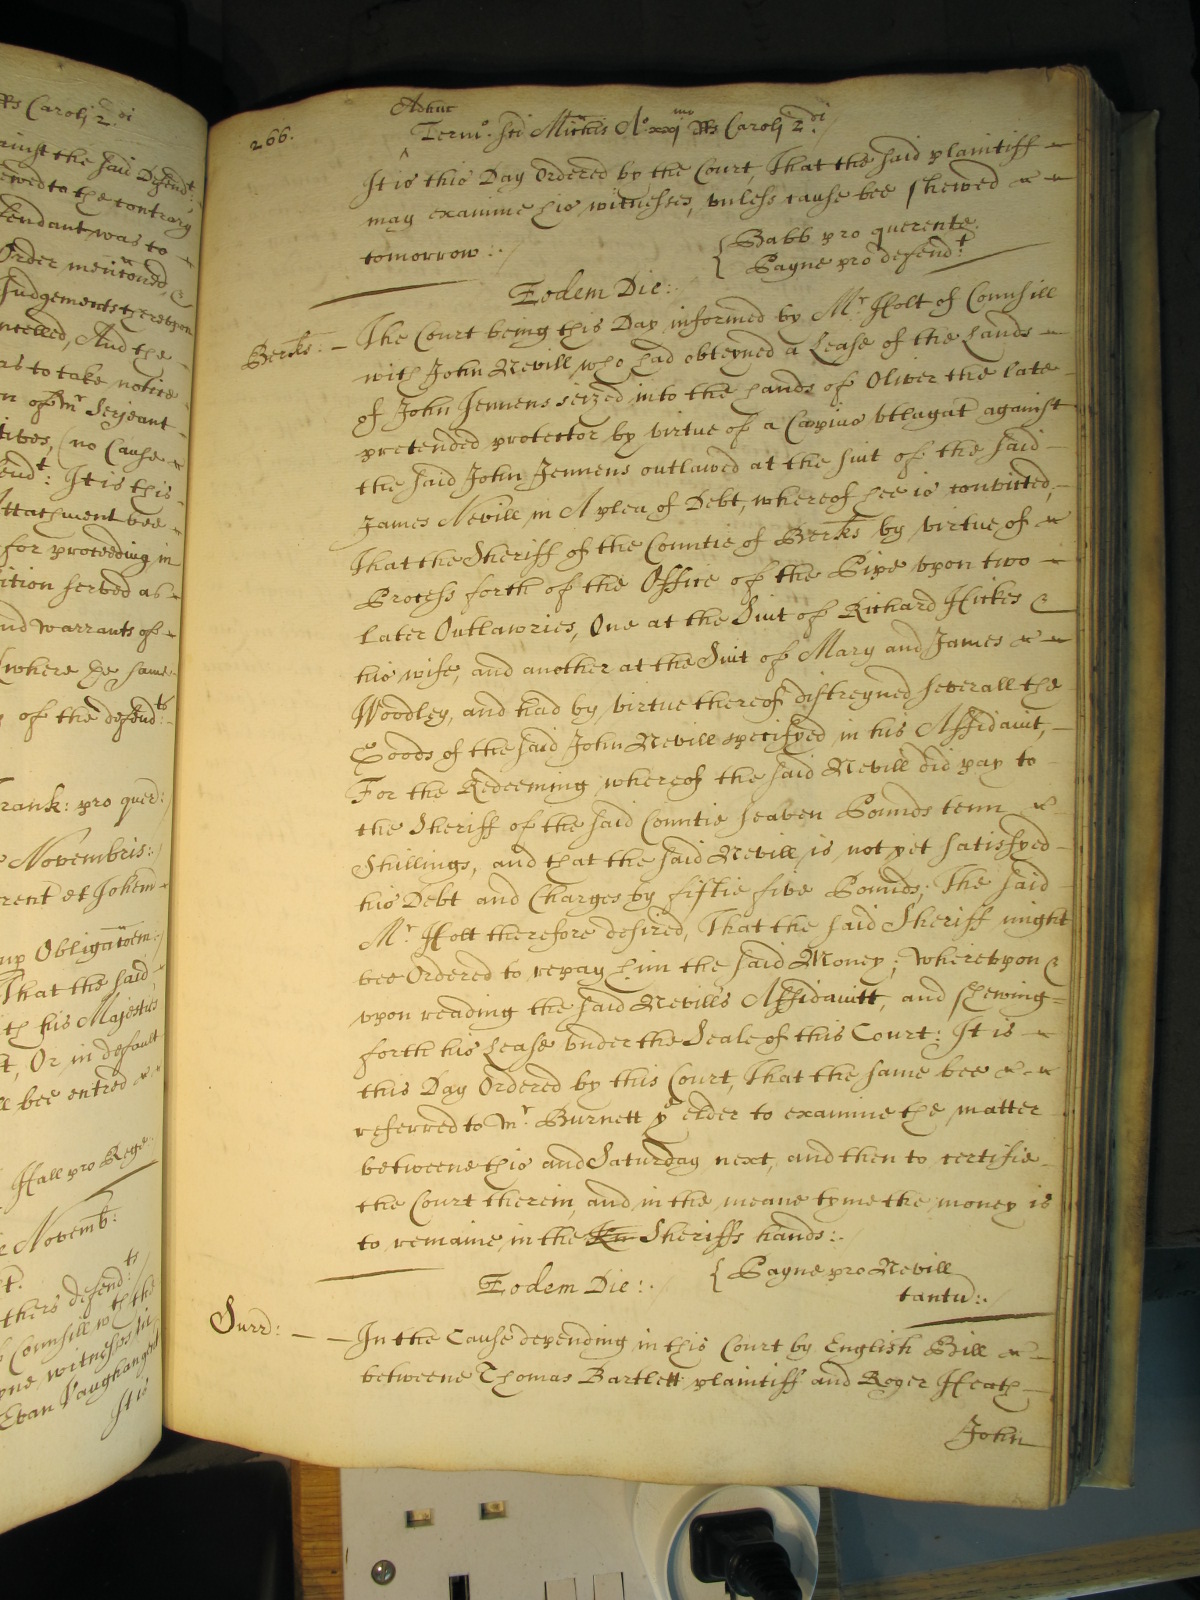 Rs Caroli 2.di
against the said Defendt:
shewed to the contrary
Defendant was to
Order menconed, &
Judgements thereupon
cancelled, And the
as to take notice
of Mr Serjeant
(no Cause
Defendt: It is this
Attachment bee
for proceeding in
served as
and warrants of
(where the same
of the defendts:
Frank: pro quer:
Novembris:
et Johem
Obligacoem
That the said
with his Majesties
Or in default
bee entred
Hall pro Rege
Novemb:
others defendts:
of Counsill with the
witnesses
Evan Vaughan
It is
266.
Adhuc
Termo. Sci Michis Ao. xxjmo Rs Caroli 2.di
It is this Day Ordered by the Court, That the said plaintiff
may examine his witnesses, unless cause bee shewed
tomorrow:.
{Babb pro querente.
{Payne pro defendt:
Eodem Die:.
Berks: – The Court being this Day informed by Mr Holt of Counsill
with John Nevill, who had obteyned a Lease of the Lands
of John Jennens seized into the hands of Oliver the late
pretended protector by virtue of a Capias Utlagat against
the said John Jennens outlawed at the suit of the said
James Nevill in A plea of Debt, whereof hee is convicted,
That the Sheriff of the Countie of Berks by virtue of
Process forth of the Office of the Pipe upon two
later Outlawries, One at the Suit of Richard Hickes &
his wife, and another at the Suit of Mary and James
Woodley, and had by virtue thereof distreyned severall the
Goods of the said John Nevill specifyed in his Affidavit,
For the Redeeming whereof the said Nevill did pay to
the Sheriff of the said Countie seaven Pounds tenn
Shillings, and that the said Nevill is not yet satisfyed
his Debt and Charges by fiftie five Pounds; The said
Mr Holt therefore desired, That the said Sheriff might
bee Ordered to repay him the said Money; Whereupon
upon reading the said Nevill's Affidavitt, and shewing
forth his Lease under the Seale of this Court: It is
this Day Ordered by this Court, That the same bee
referred to Mr Burnett ye elder to examine the matter
betweene this and Saturday next, and then to certifie
the Court therein, and in the meane tyme the money is
to remaine in the Sheriffs hands:.
{Payne pro Nevill
tantu:.
Eodem Die:.
Surr: – – In the Cause depending in this Court by English Bill
betweene Thomas Bartlett plaintiff and Roger Heath
John